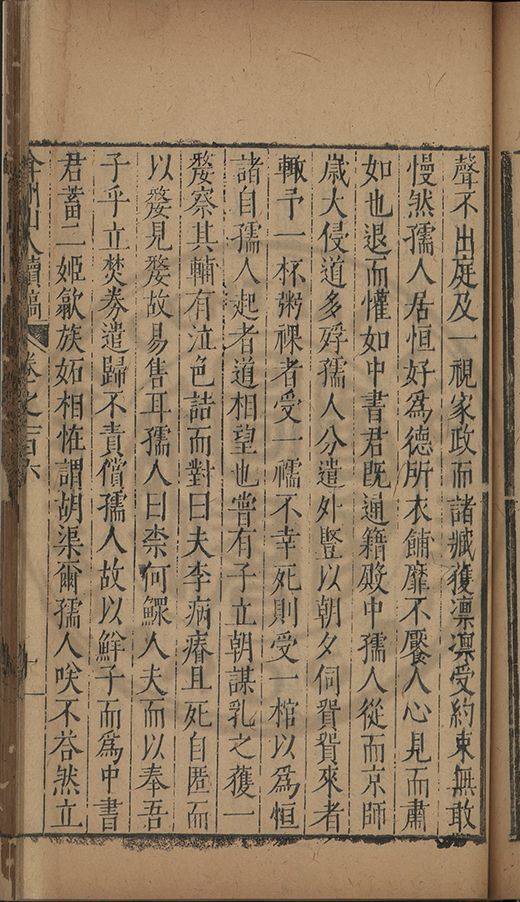 聲不出庭及一視家政而諸臧獲凛凛受約束無敢
慢然孺人居恒好為德所衣餔靡不饜人心見而肅
如也退而懽如中書君既通籍殿中孺人從而京師
歲大侵道多殍孺人分遣外豎以朝夕伺貿貿來者
輙予一杯粥裸者受一襦不幸死則受一棺以為恒
諸自孺人起者道相望也嘗有子立朝謀乳之獲一
嫠察其輔有泣色詰而對曰夫李病瘠且死自匿而
以嫠見嫠故易售耳孺人曰柰何鰥人夫而以奉吾
子乎立焚券遣歸不責償孺人故以鮮子而為中書
君蓄二姬歙族妬相恠謂胡渠爾孺人唉不荅然立
弇州山人續稿 卷之一百六 十一